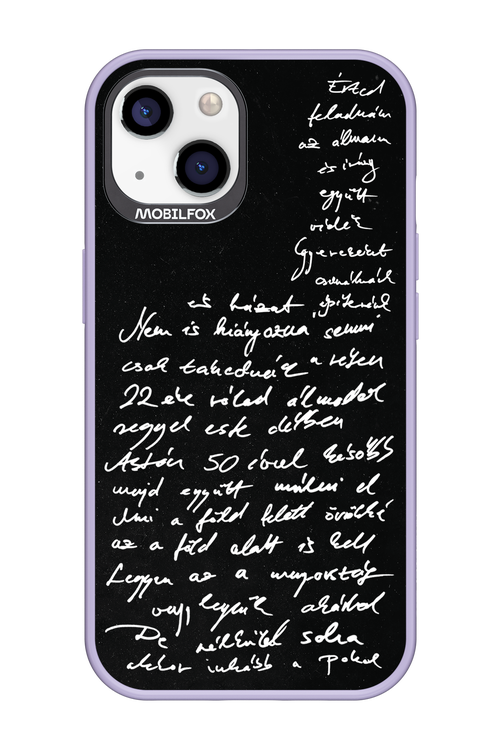 MOBILFOX
Érted
feladnám
az álmaim
és így
együtt
vidék
Gyerekeket
csinálnánk
és házat építenénk
Nem is hiányozna semmi
csak takednék a vejen
22 éve rólad álmodok
reggel este délben
Aztán 50 évvel később
majd együtt múlni el
Ami a föld felett örökké
az a föld alatt is kell
Legyen az a mennyország
vagy legyünk akárhol
De nélküled soha
akkor inkább a pokol